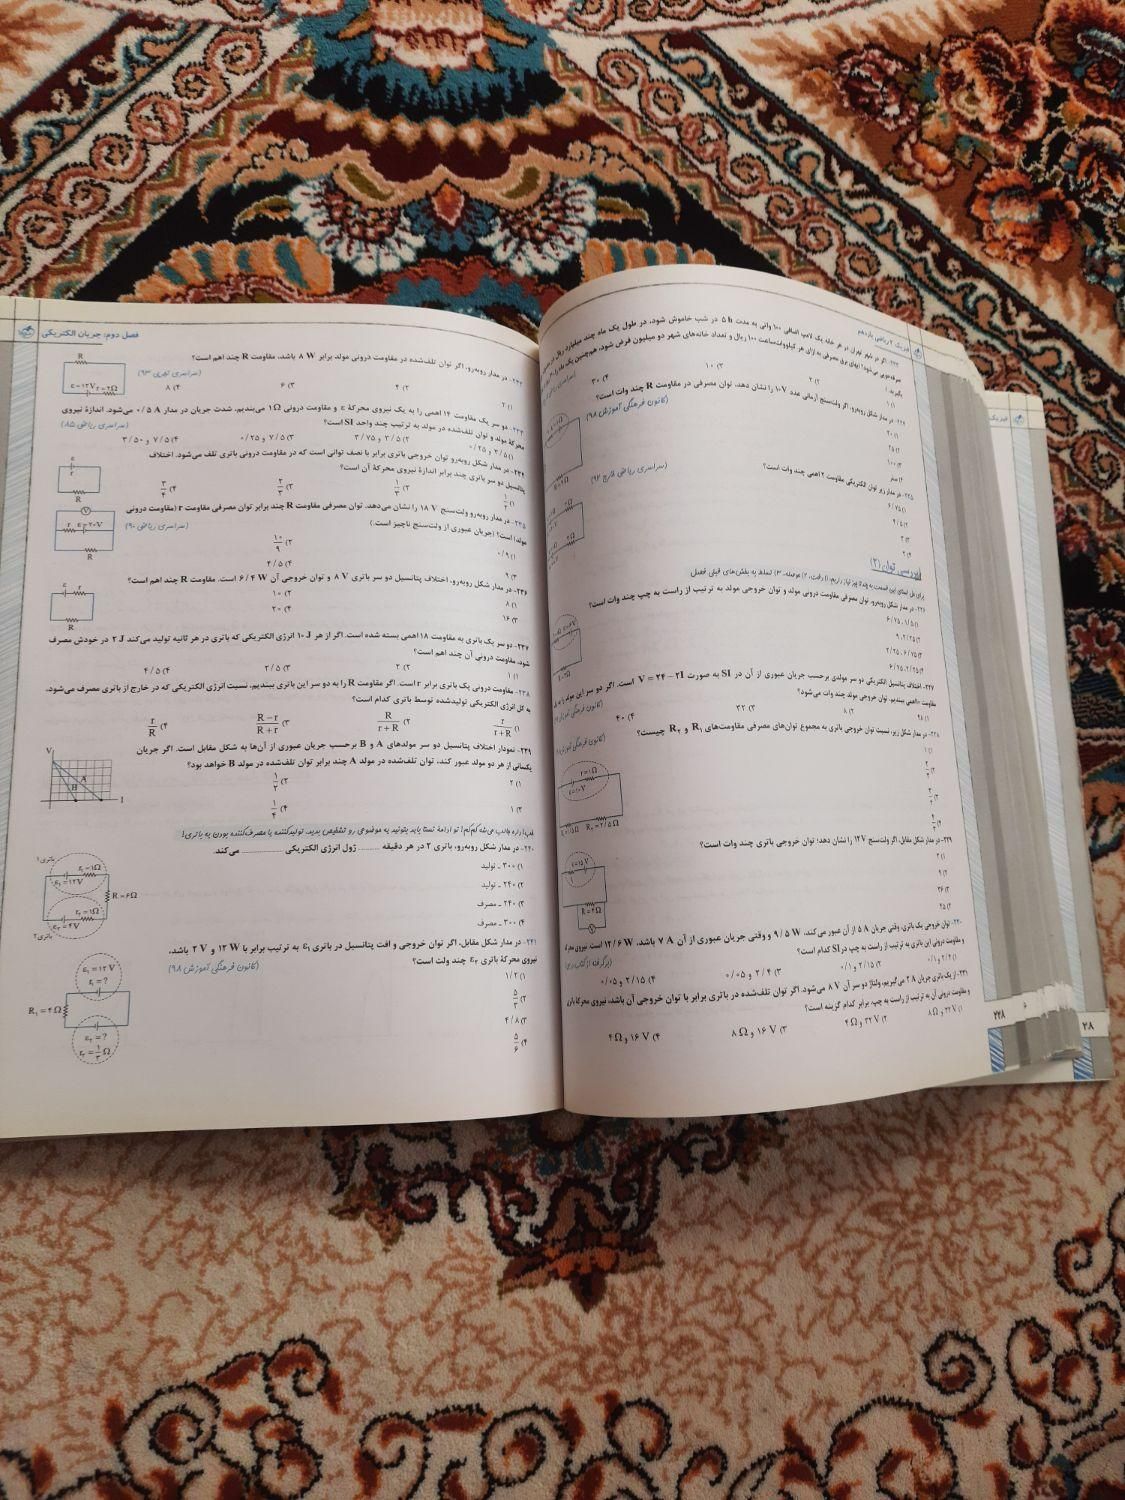 فیزیک ۲ ریاضی یازدهم
۲۲۳- اگر در شهر تهران در هر خانه یک لامپ اضافی ۱۰۰ واتی به مدت ۵ h در شب خاموش شود، در طول یک ماه چند میلیارد ریال
صرفه‌جویی می‌شود؟ (بهای برق مصرفی به ازای هر کیلووات‌ساعت ۱۰۰ ریال و تعداد خانه‌های شهر دو میلیون فرض شود، هم‌چنین یک ماه را
بگیرید.)
۱) ۱
۲) ۲
۳) ۱۰
۴) ۳۰
۲۲۴- در مدار شکل روبه‌رو، اگر ولت‌سنج آرمانی عدد ۱۰V را نشان دهد، توان مصرفی در مقاومت R چند وات است؟
(کانون فرهنگی آموزش ۹۸)
۱) ۲۰
۲) ۲۵
۳) ۱۰۰
۴) صفر
۲۲۵- در مدار زیر توان الکتریکی مقاومت ۲ اهمی چند وات است؟
(سراسری ریاضی خارج ۹۲)
۱) ۶/۷۵
۲) ۴/۵
۳) ۳
۴) ۲
بررسی توان (۲)
۲۲۶- در مدار شکل روبه‌رو، توان مصرفی مقاومت درونی مولد و توان خروجی مولد به ترتیب از راست به چپ چند وات است؟
۱) ۱/۵، ۶/۷۵
۲) ۲/۲۵، ۹
۳) ۶/۷۵، ۲/۲۵
۴) ۲/۲۵، ۶/۷۵
۲۲۷- اختلاف پتانسیل الکتریکی دو سر مولدی برحسب جریان عبوری از آن در SI به صورت V = ۲۴ – ۲I است. اگر دو سر این مولد را به یک
مقاومت ۱۰ اهمی ببندیم، توان خروجی مولد چند وات می‌شود؟
۱) ۴۸
۲) ۸
۳) ۳۲
۴) ۴۰
۲۲۸- در مدار شکل زیر، نسبت توان خروجی باتری به مجموع توان‌های مصرفی مقاومت‌های R۱ و R۲ چیست؟
r=۱Ω
ε=۱۰V
R۲=۲/۵Ω
۲۲۹- در مدار شکل مقابل، اگر ولت‌سنج ۱۲V را نشان دهد؛ توان خروجی باتری چند وات است؟
ε=۱۵V
R=۴Ω
V
۱) ۳
۲) ۹
۳) ۳۶
۴) ۴۵
۲۳۰- توان خروجی یک باتری، وقتی جریان ۵ A از آن عبور می‌کند، ۹/۵ W و وقتی جریان عبوری از آن ۷ A باشد، ۱۲/۶ W است. نیروی محرکه
و مقاومت درونی این باتری به ترتیب از راست به چپ در SI کدام است؟
۲) ۲/۱۵ و ۰/۱
۳) ۲/۴ و ۰/۰۵
۴) ۲/۱۵ و ۰/۰۵
۲۳۱- از یک باتری جریان ۲ A می‌گیریم، ولتاژ دو سر آن ۸ V می‌شود. اگر توان تلف‌شده در باتری برابر با توان خروجی آن باشد، نیروی محرکهٔ باتری
و مقاومت درونی آن به ترتیب از راست به چپ، برابر کدام گزینه است؟
۱) ۳۲ V و ۸ Ω
۲) ۳۲ V و ۴ Ω
۳) ۱۶ V و ۸ Ω
۴) ۱۶ V و ۴ Ω
۲۲۸
فصل دوم: جریان الکتریکی
۲۳۲- در مدار روبه‌رو، اگر توان تلف‌شده در مقاومت درونی مولد برابر ۸ W باشد، مقاومت R چند اهم است؟
(سراسری تجربی ۹۳)
R
ε=۱۲V r=۲Ω
۱) ۲
۲) ۴
۳) ۶
۴) ۸
۲۳۳- دو سر یک مقاومت ۱۴ اهمی را به یک نیروی محرکهٔ ε و مقاومت درونی ۱Ω می‌بندیم، شدت جریان در مدار ۰/۵ A می‌شود. اندازهٔ نیروی
محرکهٔ مولد و توان تلف‌شده در مولد به ترتیب چند واحد SI است؟
(سراسری ریاضی ۸۵)
۱) ۳/۵ و ۰/۲۵
۲) ۳/۵ و ۳/۷۵
۳) ۷/۵ و ۰/۲۵
۴) ۷/۵ و ۳/۵۰
۲۳۴- در مدار شکل روبه‌رو توان خروجی باتری برابر با نصف توانی است که در مقاومت درونی باتری تلف می‌شود. اختلاف
پتانسیل دو سر باتری چند برابر اندازهٔ نیروی محرکهٔ آن است؟
ε
r
R
۱) ۱/۲
۲) ۱/۳
۳) ۲/۳
۴) ۳/۴
۲۳۵- در مدار روبه‌رو ولت‌سنج ۱۸ V را نشان می‌دهد. توان مصرفی مقاومت R چند برابر توان مصرفی مقاومت r (مقاومت درونی
مولد) است؟ (جریان عبوری از ولت‌سنج ناچیز است.)
(سراسری ریاضی ۹۰)
V
r ε=۲۰V
R
۱) ۰/۹
۲) ۱۰/۹
۳) ۹
۴) ۴/۵
۲۳۶- در مدار شکل روبه‌رو، اختلاف پتانسیل دو سر باتری ۸ V و توان خروجی آن ۶/۴ W است. مقاومت R چند اهم است؟
ε r
R
۱) ۸
۲) ۱۰
۳) ۱۶
۴) ۲۰
۲۳۷- دو سر یک باتری به مقاومت ۱۸ اهمی بسته شده است. اگر از هر ۱۰ J انرژی الکتریکی که باتری در هر ثانیه تولید می‌کند ۲ J در خودش مصرف
شود، مقاومت درونی آن چند اهم است؟
۱) ۱
۲) ۲
۳) ۲/۵
۴) ۴/۵
۲۳۸- مقاومت درونی یک باتری برابر r است. اگر مقاومت R را به دو سر این باتری ببندیم، نسبت انرژی الکتریکی که در خارج از باتری مصرف می‌شود،
به کل انرژی الکتریکی تولیدشده توسط باتری کدام است؟
۱) r/(r+R)
۲) R/(r+R)
۳) (R–r)/(R+r)
۴) r/R
۲۳۹- نمودار اختلاف پتانسیل دو سر مولدهای A و B برحسب جریان عبوری از آن‌ها به شکل مقابل است. اگر جریان
یکسانی از هر دو مولد عبور کند، توان تلف‌شده در مولد A چند برابر توان تلف‌شده در مولد B خواهد بود؟
V
A
B
I
۱) ۲
۲) ۱/۲
۳) ۱
۴) ۱/۴
۲۴۰- در مدار شکل روبه‌رو، باتری ۲ در هر دقیقه ......... ژول انرژی الکتریکی ............... می‌کند.
باتری۱
r۱=۱Ω
ε۱=۱۲V
R=۶Ω
r۲=۱Ω
ε۲=۴V
باتری۲
۱) ۳۰۰ ـ تولید
۲) ۲۴۰ ـ تولید
۳) ۲۴۰ ـ مصرف
۴) ۳۰۰ ـ مصرف
۲۴۱- در مدار شکل مقابل، اگر توان خروجی و افت پتانسیل در باتری ε۱ به ترتیب برابر با ۱۲ W و ۲ V باشد،
نیروی محرکهٔ باتری ε۲ چند ولت است؟
(کانون فرهنگی آموزش ۹۸)
ε۱=۱۲ V
r۱=?
R۱=۴Ω
ε۲=?
r۲=۱/۳ Ω
۱) ۱/۲
۲) ۵/۲
۳) ۴/۸
۴) ۵/۶